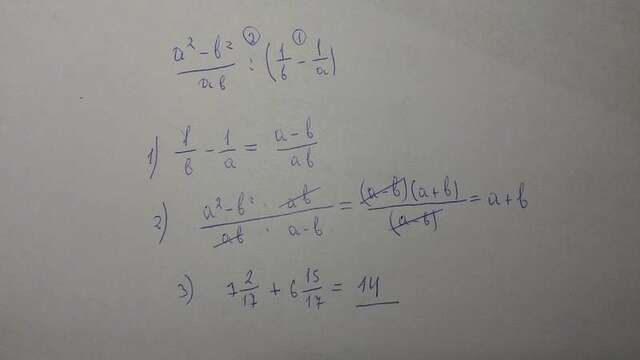 (a² - b²)/(ab) ② : (1/b ① - 1/a)
1) 1/b - 1/a = (a - b)/(ab)
2) (a² - b² · ab)/(ab · a - b) = ((a-b)(a+b))/((a-b)) = a + b
3) 7 2/17 + 6 15/17 = 14